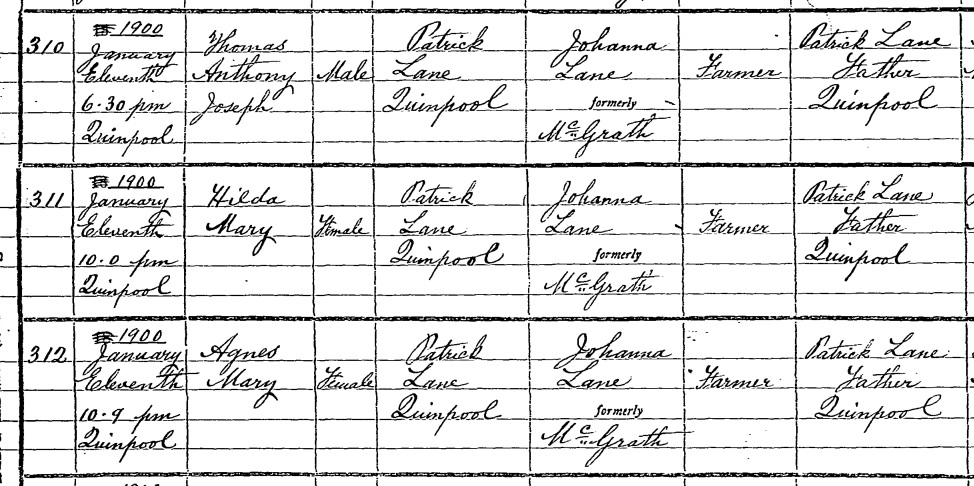 310
1900
January
Eleventh
6.30 pm
Quinpool
Thomas
Anthony
Joseph
Male
Patrick
Lane
Quinpool
Johanna
Lane
formerly
McGrath
Farmer
Patrick Lane
Father
Quinpool
311
1900
January
Eleventh
10.0 pm
Quinpool
Hilda
Mary
Female
Patrick
Lane
Quinpool
Johanna
Lane
formerly
McGrath
Farmer
Patrick Lane
Father
Quinpool
312
1900
January
Eleventh
10.9 pm
Quinpool
Agnes
Mary
Female
Patrick
Lane
Quinpool
Johanna
Lane
formerly
McGrath
Farmer
Patrick Lane
Father
Quinpool